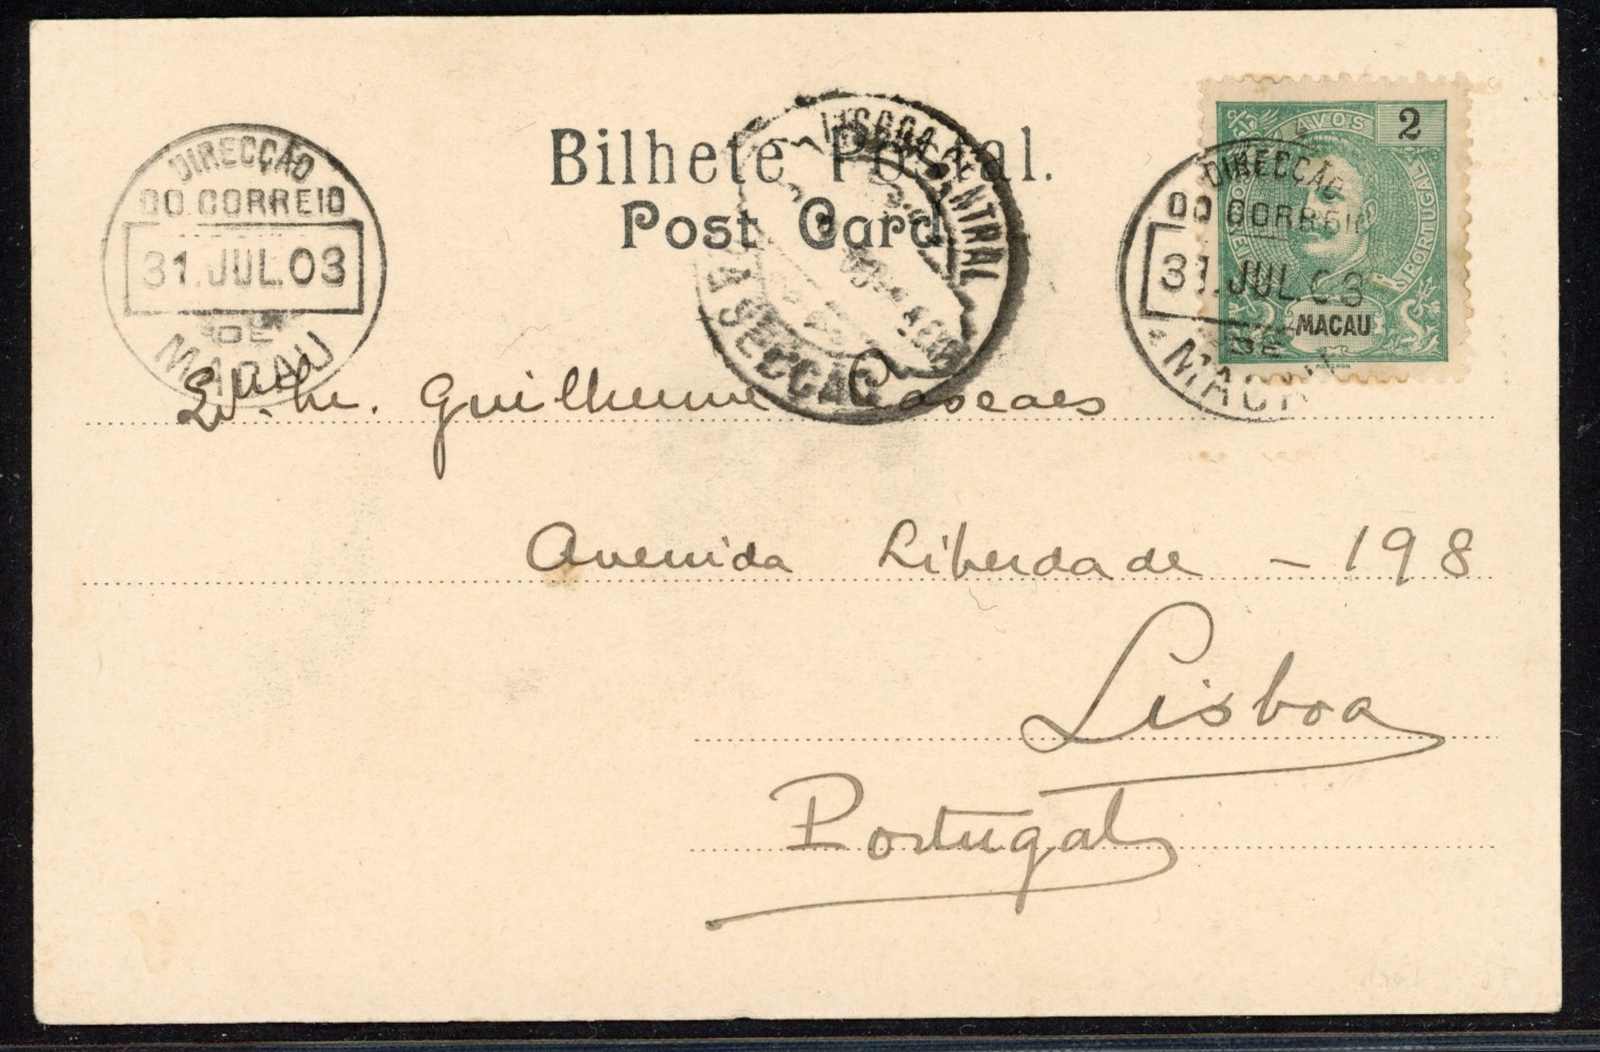 Bilhete Postal.
Post Card
DIRECÇÃO
DO CORREIO
31.JUL.03
DE
MACAU
LISBOA CENTRAL
SECÇÃO
AVOS
2
PORTUGAL
MACAU
DIRECÇÃO
DO CORREIO
31.JUL.03
DE
Guilherme Cascaes
Avenida Liberdade - 198
Lisboa
Portugal